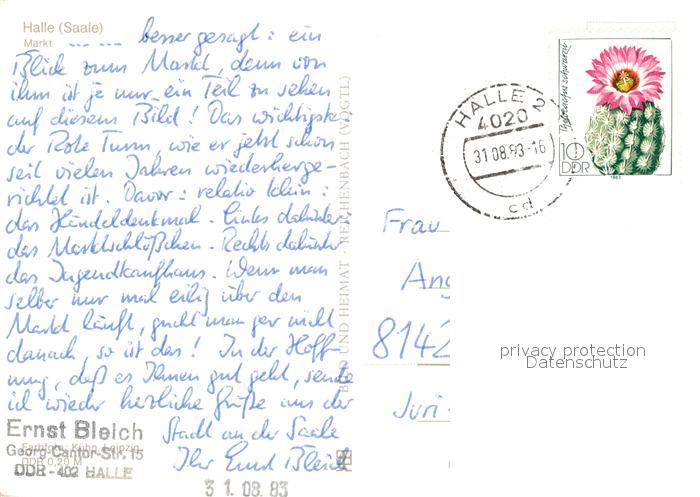 Halle (Saale)
Markt ... ... besser gesagt: ein
Blick zum Markt, denn von
ihm ist je nur ein Teil zu sehen
auf diesem Bild! Das wichtigste:
der Rote Turm, wie er jetzt schon
seit vielen Jahren wiederherge-
richtet ist. Davor: relativ klein:
das Händeldenkmal. Links dahinter:
das Marktschlößchen. Rechts dahinter
das Jugendkaufhaus. Wenn man
selber nur mal eilig über den
Markt läuft, guckt man gar nicht
danach, so ist das! In der Hoff-
nung, daß es Ihnen gut geht, sende
ich wieder herzliche Grüße aus der
Stadt an der Saale
Ihr Ernst Bleich
Ernst Bleich
Georg-Cantor-Str. 15
DDR - 402 HALLE
Farbfoto: Kühn, Leipzig
DDR 0,20 M
31.08.83
BILD UND HEIMAT · REICHENBACH (VOGTL)
HALLE 2
4020
31.08.83-16
cd
10
DDR
1983
Frau
Ang
8142
Juri-
privacy protection
Datenschutz